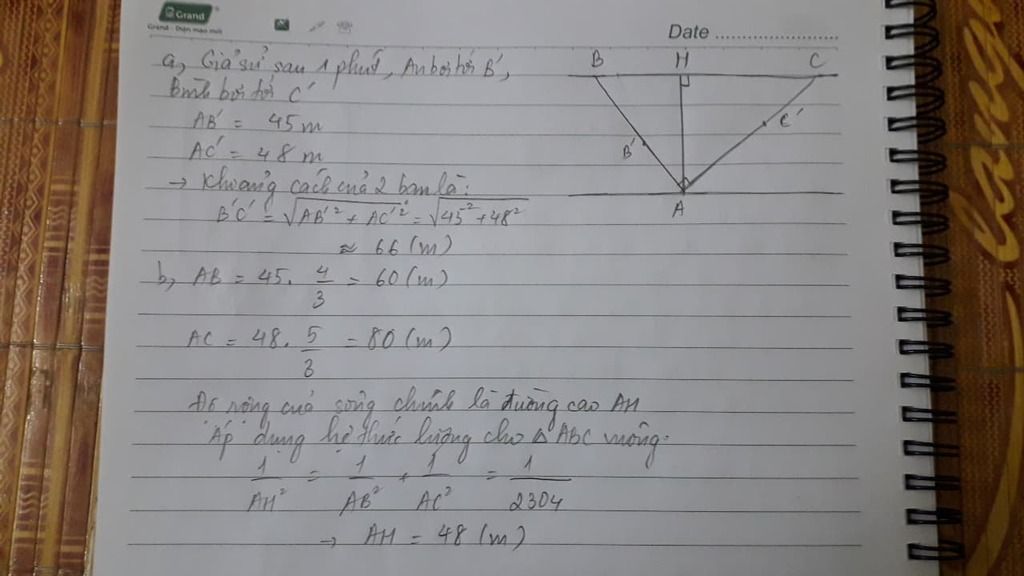 Grand
Grand - Diện mạo mới
Date ........................
a, Giả sử sau 1 phút, An bơi tới B',
Bình bơi tới C'
AB' = 45 m
AC' = 48 m
→ Khoảng cách của 2 bạn là:
B'C' = √AB'² + AC'² = √45² + 48²
≈ 66 (m)
b, AB = 45. 4/3 = 60 (m)
AC = 48. 5/3 = 80 (m)
Độ rộng của sông chính là đường cao AH
Áp dụng hệ thức lượng cho Δ ABC vuông:
1/AH² = 1/AB² + 1/AC² = 1/2304
→ AH = 48 (m)
B H C
B' C'
A